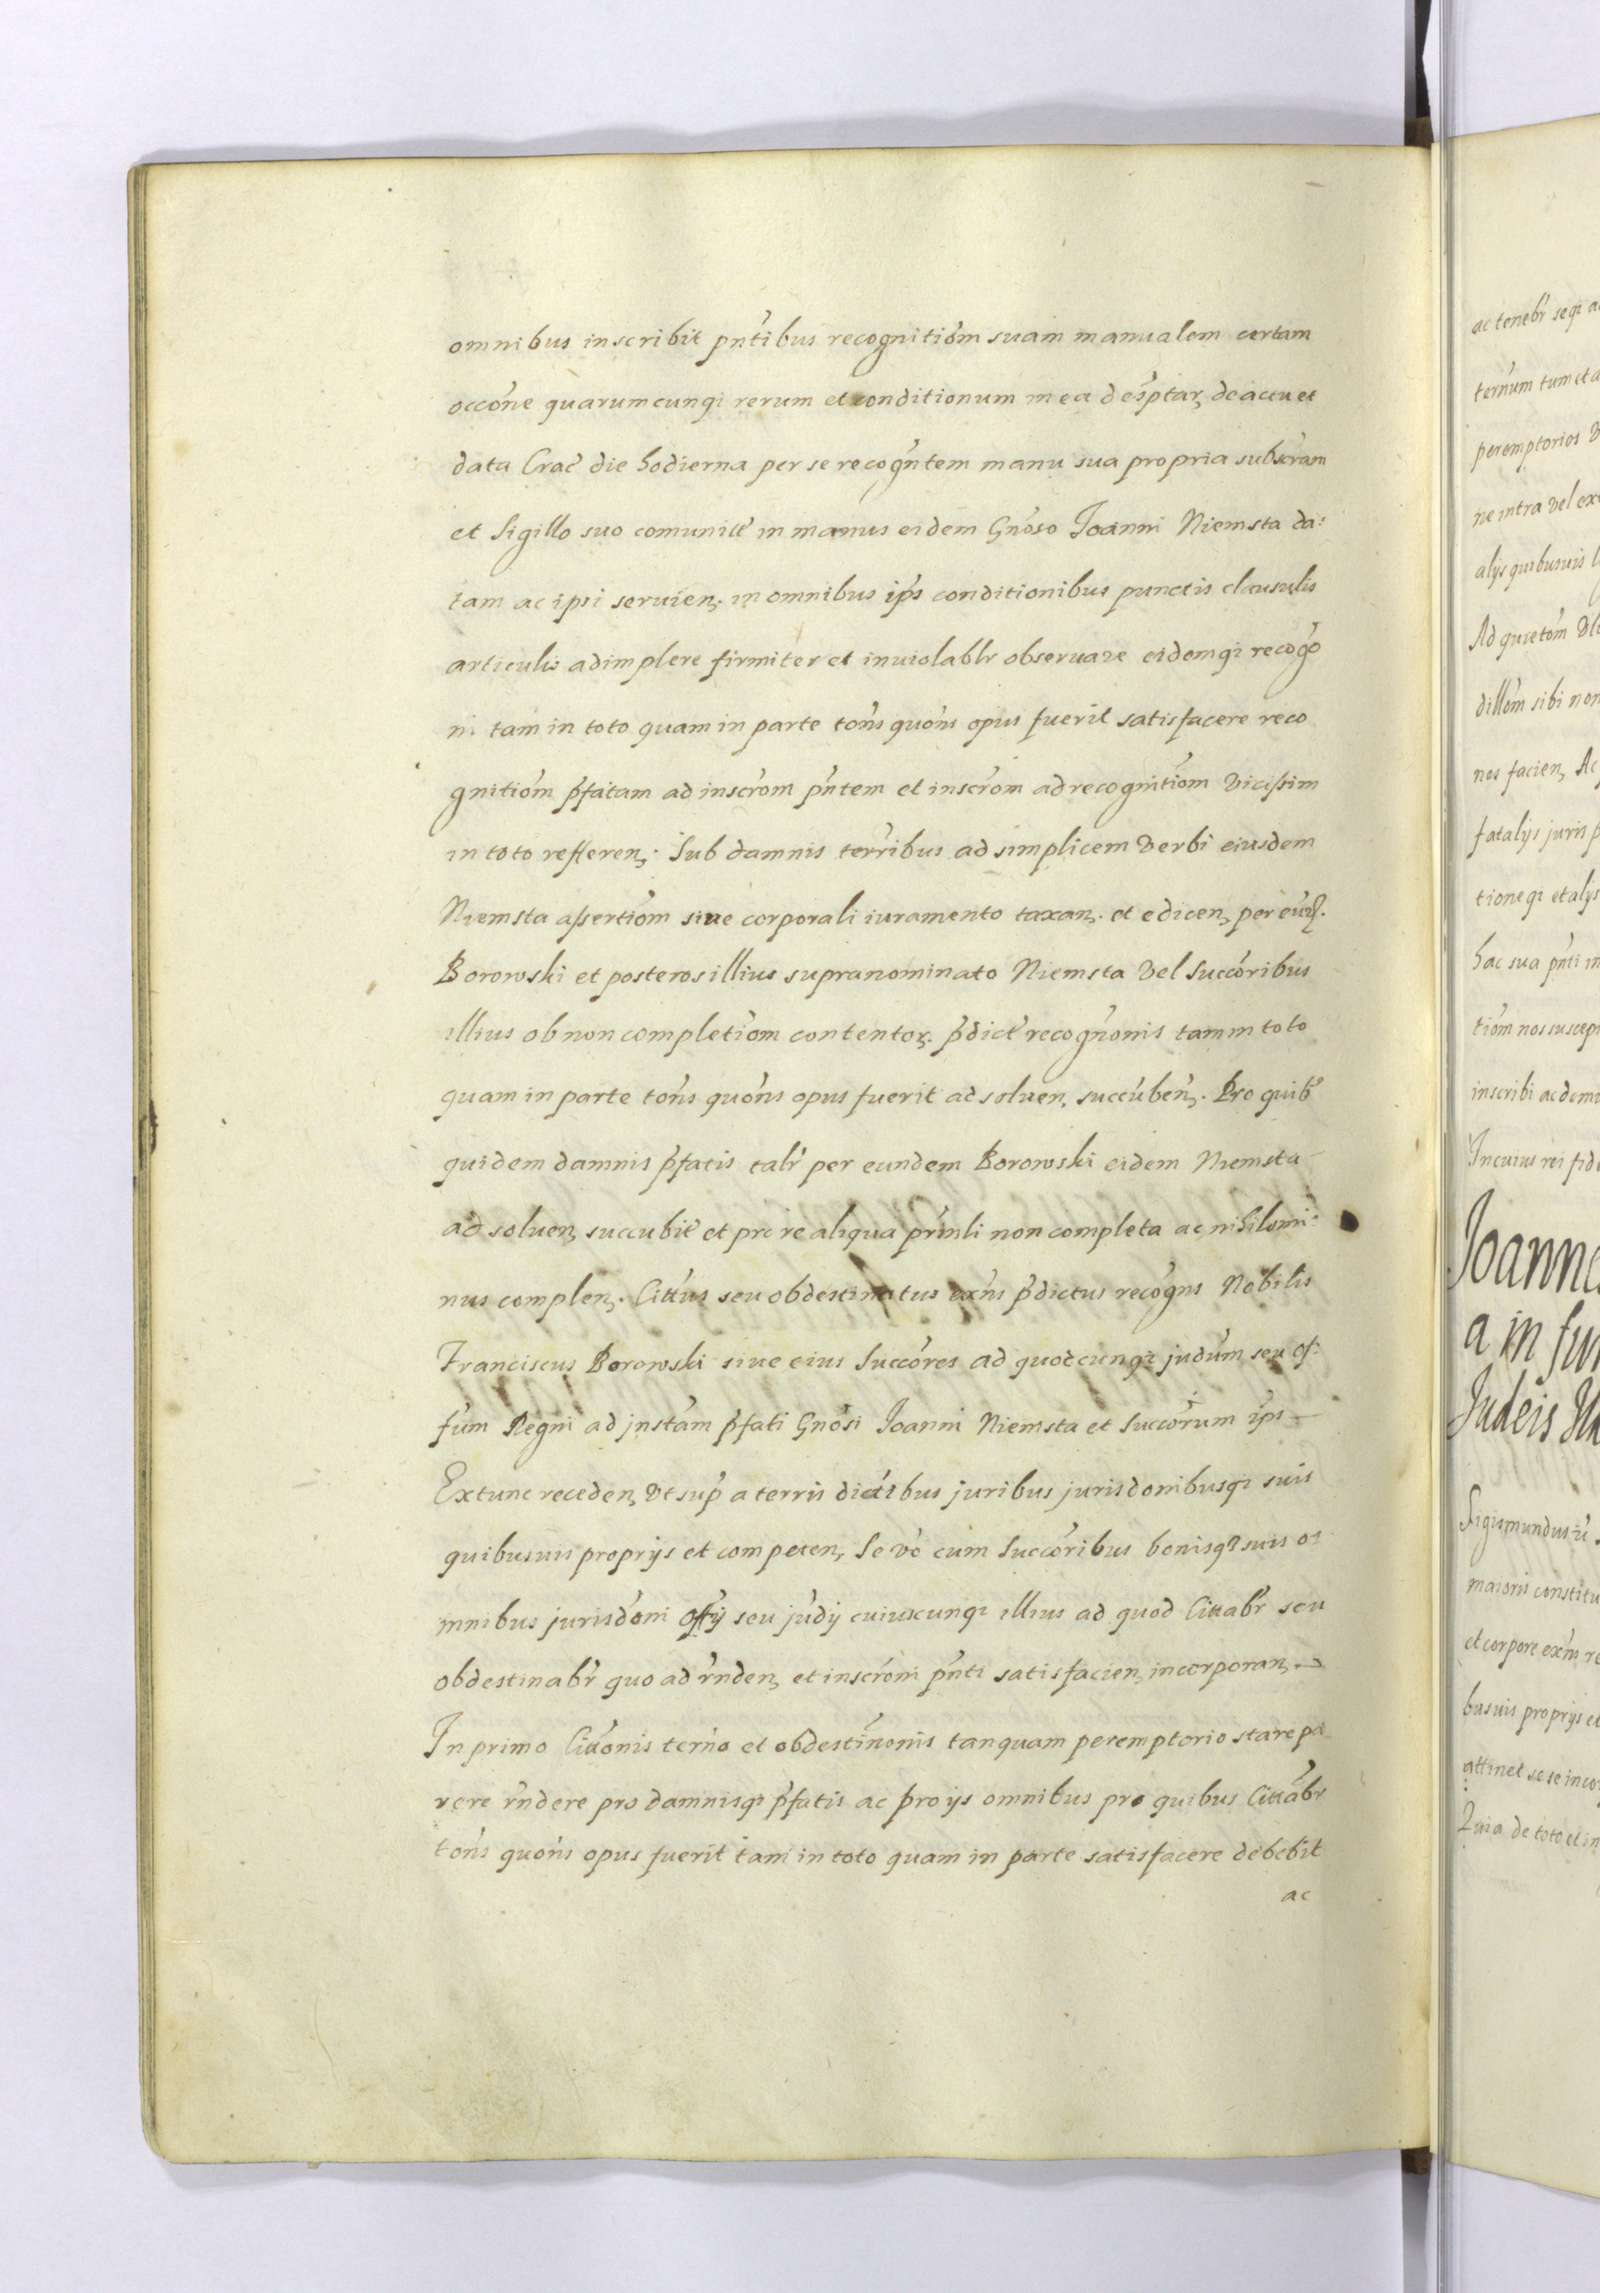 omnibus inscribit pñtibus recognitiõm suam manualem certam
occõne quarumcunqɜ rerum et conditionum in ea desc̃ptaꝝ de actu et
data Crac̃ die hodierna per se recogñtem manu sua propria subscr̃am
et Sigillo suo comunit̃ in manus eidem Gnõso Joanni Niemsta da:
tam ac ipsi seruieñ. in omnibus ip̃s conditionibus punctis clausulis
articulis adimplere firmiter et inuiolablr̃ obseruare eidemqɜ recog̃o
ni tam in toto quam in parte totñs quotñs opus fuerit satisfacere reco
gnitiõm p̃fatam ad inscrõm pñtem et inscrõm ad recognitiõm vicissim
in toto refferenꝫ. Sub damnis terr̃ibus ad simplicem verbi eiusdem
Niemsta assertiõm siue corporali iuramento taxanꝫ. et edicenꝫ per
Borowski et posteros illius supranominato Niemsta vel Succõribus
illius ob non completiõm contentoꝝ. p̃dict̃ recognõnis tam in toto
quam in parte totñs quotñs opus fuerit ad soluenꝫ succubeñ. Pro quib̃
quidem damnis p̃fatis talr̃ per eundem Borowski eidem Niemsta
ad soluenꝫ succubit̃ et pro re aliqua pr̃nli non completa ac nihilomi:
nus complenꝫ. Citt̃us seu obdestinatus exñs p̃dictus recogñs Nobilis
Franciscus Borowski siue eius Succõres ad quodcunqɜ jud̃um seu of:
f̃um Regni ad jnstãm p̃fati Gnõsi Joanni Niemsta et Succõrum ip̃s
Extunc recedenꝫ vt sup̃ a terris dict̃ibus juribus jurisdõnibusqɜ suis
quibusuis proprijs et competenꝫ Se vẽ cum Succõribus bonisqɜ suis o:
mnibus jurisdõni off̃ij seu jud̃ij cuiuscunqɜ illius ad quod Cittabr̃ seu
obdestinabr̃ quo ad r̃ndenꝫ et inscrõni pñti satisfacienꝫ incorporanꝫ.
In primo Cittõnis terño et obdestinõnis tanquam peremptorio stare pa
rere r̃ndere pro damnisqɜ p̃fatis ac pro ijs omnibus pro quibus Cittabr̃
totñs quotñs opus fuerit tam in toto quam in parte satisfacere debebit
ac
ac tenebr̃ seqɜ
ter̃num tum
peremptorios
ne intra vel
alijs quibusuis
Ad quietõm
dillõm sibi non
nes facien, Ac
fatalijs juris
tioneqɜ et alijs
hac sua pñti in
tiõm nos
inscribi ac
In cuius rei
Joanne
a in
Judeis
Sigismundus
maioris
et corpore exñs
busuis proprijs et
attinet se se
Quia de toto et in